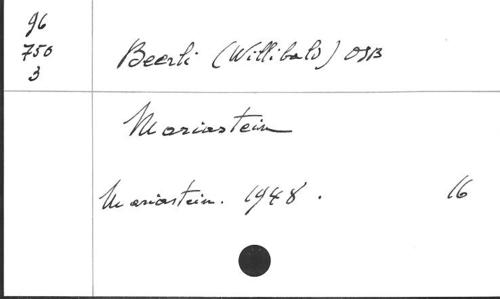 96
750
3
Beerli (Willibald) OSB
Mariastein
Mariastein. 1948. 16